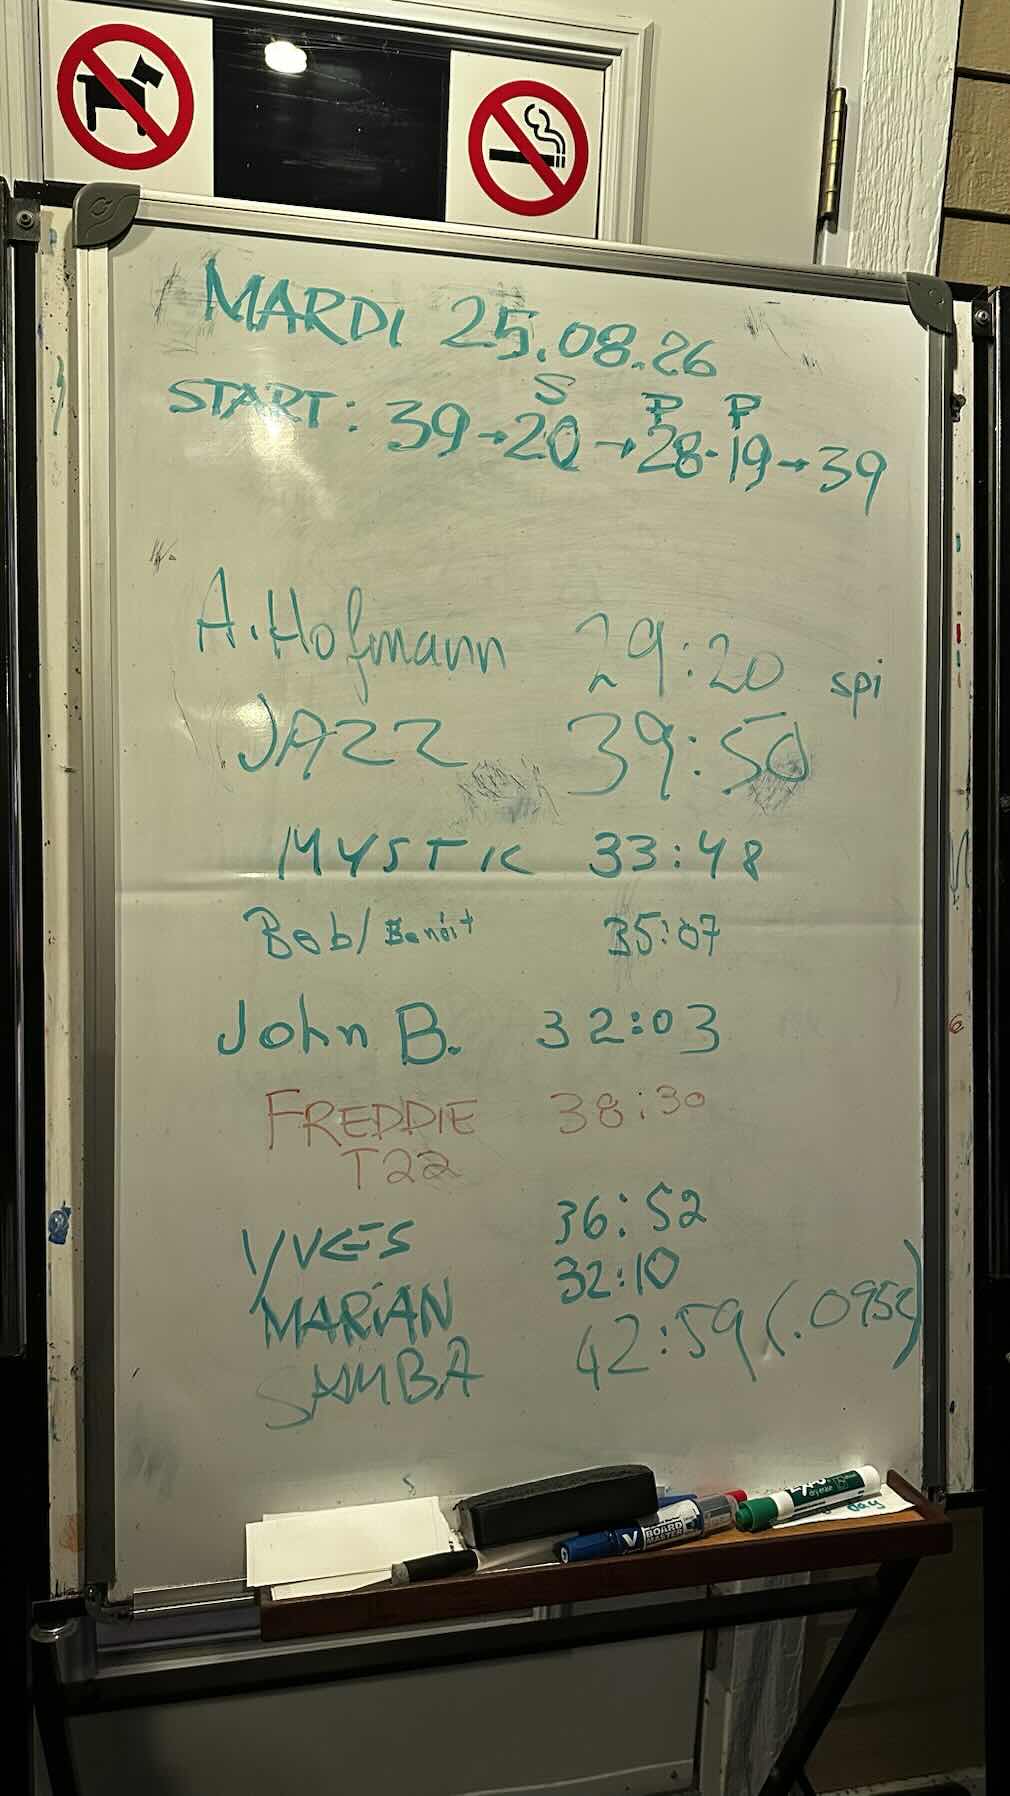 MARDI 25.08.26
S P P
START: 39→20→28-19→39
A. Hofmann 29:20 spi
JAZZ 39:50
MYSTIC 33:48
Bob/Benoit 35:07
John B. 32:03
FREDDIE 38:30
T22
YVES 36:52
MARIAN 32:10
SAMBA 42:59 (.0952)
V BOARD MASTER
EXPO
day